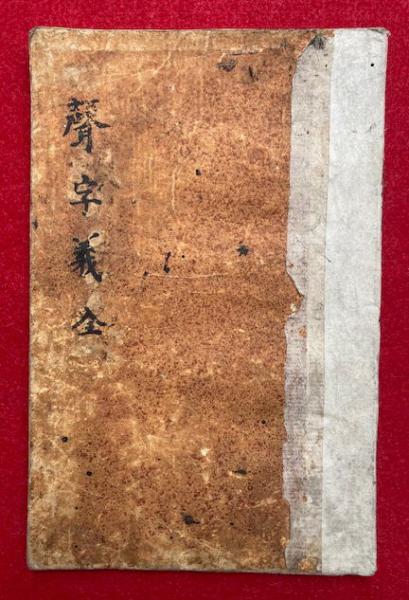 聲字義全